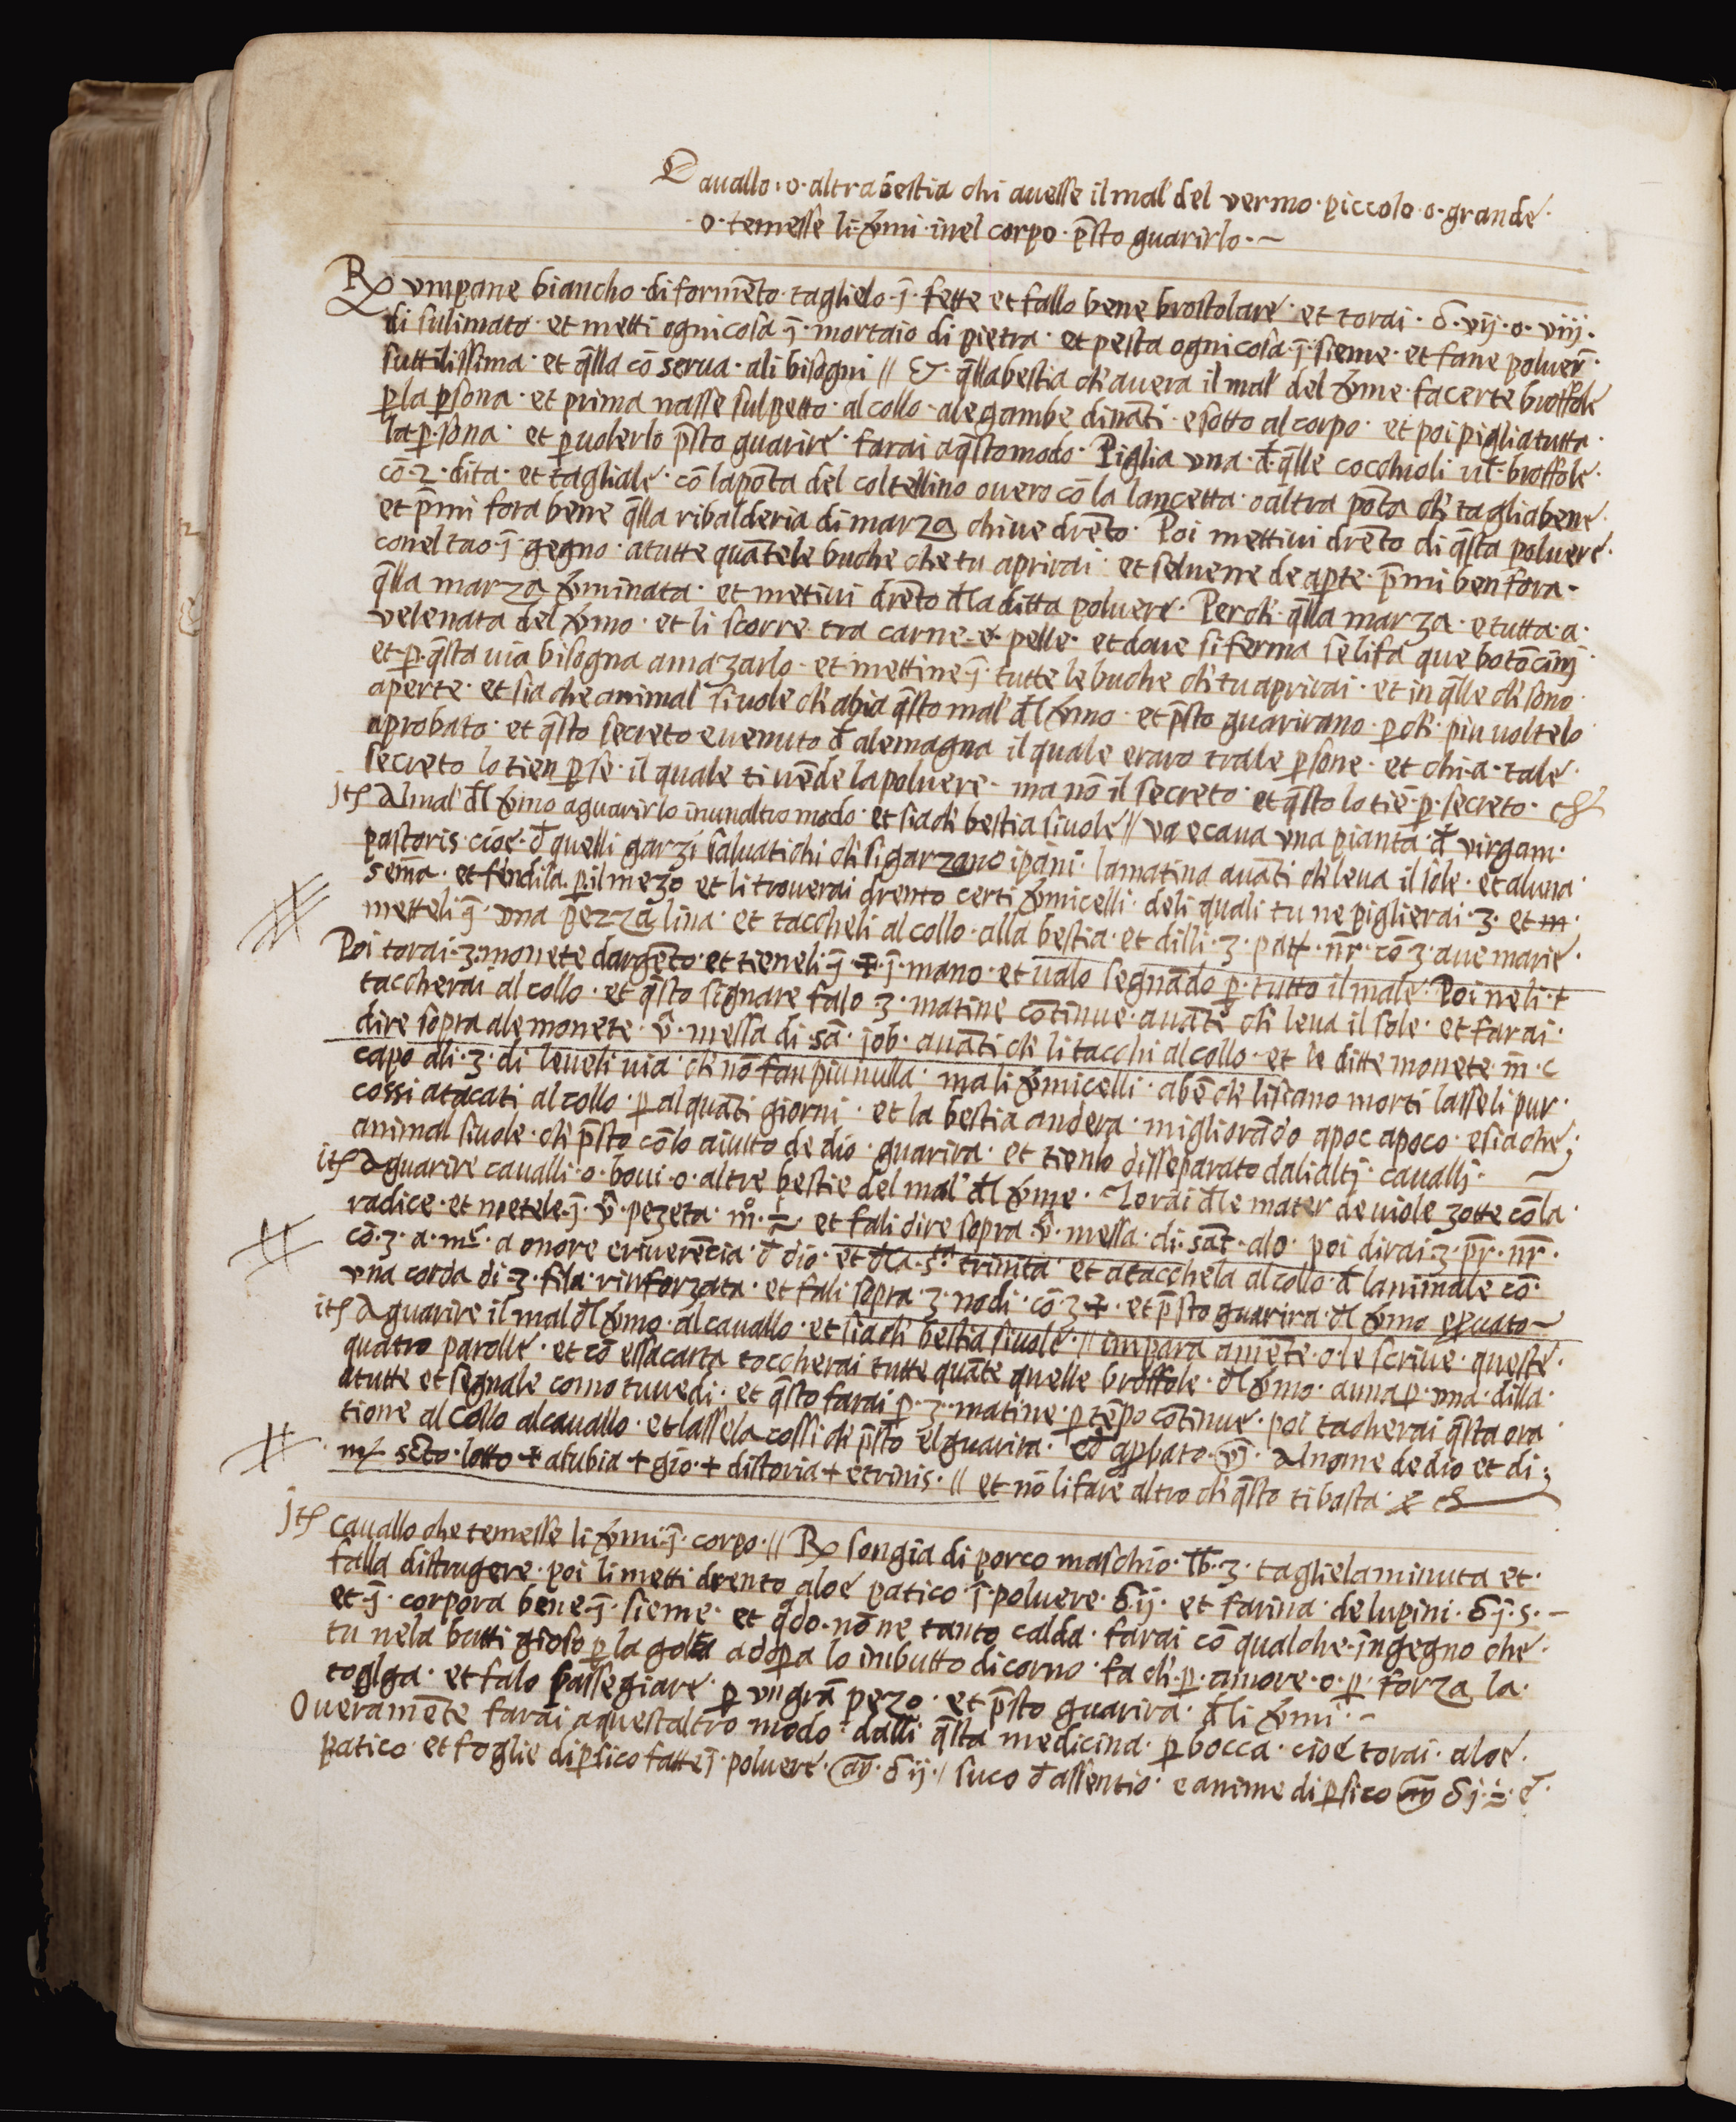 Cauallo · o · altra bestia chi auesse il mal del vermo · piccolo · o · grande ·
· o · temesse li v̄mi · inel corpo · p̄sto guarirlo · ~
Rx vmpane biancho · di form̄eto · taglielo · ī · fette et fallo bene brostolare · et torai · δ · vij · o · viij ·
di sulimato · et metti ognicosa ī · mortaio di pietra · et pesta ognicosa · ī · sieme · et fane poluer̄ ·
suttilissima · et q̄lla cō serua · ali bisogni // Et · q̄lla bestia ch' auera il mal del v̄me · fa certe broffole
ꝑ la ꝑsona · et prima nasse sul petto · al collo · ale gambe dināti · e sotto al corpo · et poi piglia tutta ·
la ꝑ · sona · et ꝑ uolerlo p̄sto guarire · farai a q̄sto modo · Piglia vna · đ · q̄lle cocchuoli ut̄ · broffole ·
cō · 2 · dita · et tagliale · cō la pōta del coltellino ouero cō la lancetta · o altra pōta ch' taglia bene ·
et p̄mi fora bene q̄lla ribalderia di marza chi ue drēto · Poi mettiui drēto di q̄sta poluere ·
con el tao · ī · gegno · a tutte quāte le buche che tu aprirai · et sel uene de apte · p̄mi ben fora ·
q̄lla marza v̄minata · et metiui drēto đ la ditta poluere · Perch' q̄lla marza · e tutta · a ·
velenata del v̄mo · et li scorre tra carne · e · pelle · et doue si ferma se li fa que botōcinj ·
et · ꝑ · q̄sta uia bisogna amazarlo · et mettine · ī · tutte le buche ch' tu aprirai · et in q̄lle ch' sono ·
aperte · et sia che animal si uole ch' abia q̄sto mal đl v̄mo · et p̄sto guarirano · ꝑ ch' · piu uolte lo
aprobato · et q̄sto secreto e uenuto đ alemagna il quale eraro tra le ꝑsone · et chi · a · tale ·
secreto lo tien ꝑ se · il quale ti uēde la poluere · ma nō il secreto · et q̄sto lo tiē · ꝑ · secreto ·
jtꝭ Al mal đl v̄mo a guarirlo in un altro modo · et sia ch' bestia si uole // va e caua vna pianta · đ · virgam ·
pastoris · cioe · đ quelli garzi saluatichi ch' si garzano i pāni · la matina auāti ch' leua il sole · et a luna ·
sēma · et fendila · ꝑ · il mezo et li trouerai drento certi v̄micelli · deli quali tu ne piglierai · 3 · et m ·
metteli ī · vna pezza lina · et taccheli al collo · alla bestia · et dilli · 3 · patr̄ · nr̄ · cō 3 · aue marie ·
Poi torai · 3 · monete dargēto · et tieneli · ī ✝ · ī · mano · et ualo segnādo ꝑ · tutto il male · Poi ne li · t
taccherai al collo · et q̄sto signare falo 3 · matine cōtinue · auāte ch' leua il sole · et farai ·
dire sopra ale monete · v̄ · messa di · sā · job · auāti ch' li tacchi al collo · et le ditte monete · m̄ · c
capo ali · 3 · di leueli uia · ch' nō fan piu nulla · ma li v̄micelli · abē ch' li siano morti lasseli pur ·
cossi atacati al collo · ꝑ alquāti giorni · et la bestia andera · migliorādo apoc apoco · e sia che ;
animal si uole · ch' p̄sto cō lo aiutto de dio · guarira · et tienlo disseparato dali altj · caualli ·
itꝭ A guarire caualli · o · boui · o · altre bestie del mal đl v̄me · Torai đ le mater de uiole zotte cō la ·
radice · et metele · ī · v̄ · pezeta · et fali dire sopra v̄ · messa · di · sāt · alo · poi dirai · 3 · pr̄ · nr̄ ·
cō · 3 · a · m · a onore e riuerēcia · đ dio · et đ la · s.ta trinita et atacchela al collo · đ lanimale cō ·
vna corda di · 3 · fila · rinforzata · et fali sopra · 3 · nodi · cō · 3 ✝ · et p̄sto guarira · đl v̄mo
itꝭ A guarire il mal đl v̄mo · al cauallo · et sia ch' bestia si uole · // impara amēte · o · le scriue · queste ·
quatro parolle · et cō essa carta toccherai tutte quāte quelle broffole · đl v̄mo · a una ꝑ · vna · dilla ·
a tutte et segnale como tu uedi · et q̄sto farai ꝑ · 3 · matine · ꝑ tēpo cōtinue · poi tacherai q̄sta ora ·
tione al collo al cauallo · et lassela cossi ch' p̄sto el guarira · Al nome de dio et di ;
scto · lotto + atubia + gio · + distoria + etrinis · // et nō li fare altro ch' q̄sto ti basta ·
jtꝭ cauallo che temesse li v̄mi · ī · corpo · // Rx songia di porco maschio · lb · 3 · taglielaminuta et ·
falla distrugere · poi li metti drento aloe patico · ī · poluere · δ · ij · et farina · de lupini · δ · j · s · ~
et · ī · corpora bene · ī · sieme · et qdo · nō ne tanto calda · farai cō qualche · īngegno che ·
tu nela butti gioso ꝑ la gola adoꝑa lo imbutto di corno · fa ch' · ꝑ · amore · o · ꝑ · forza la ·
toglga · et falo passegiare · ꝑ vn grā pezo · et p̄sto guarira · đ li v̄mi · ~
Oueramēte farai aquestaltro modo · dalli q̄sta medicina · ꝑ bocca · cioe torai · aloe ·
patico · et foglie di ꝑsico fatte ī · poluere · aū · δ ij · / suco đ assentio · e anime di ꝑsico aū δ j ·